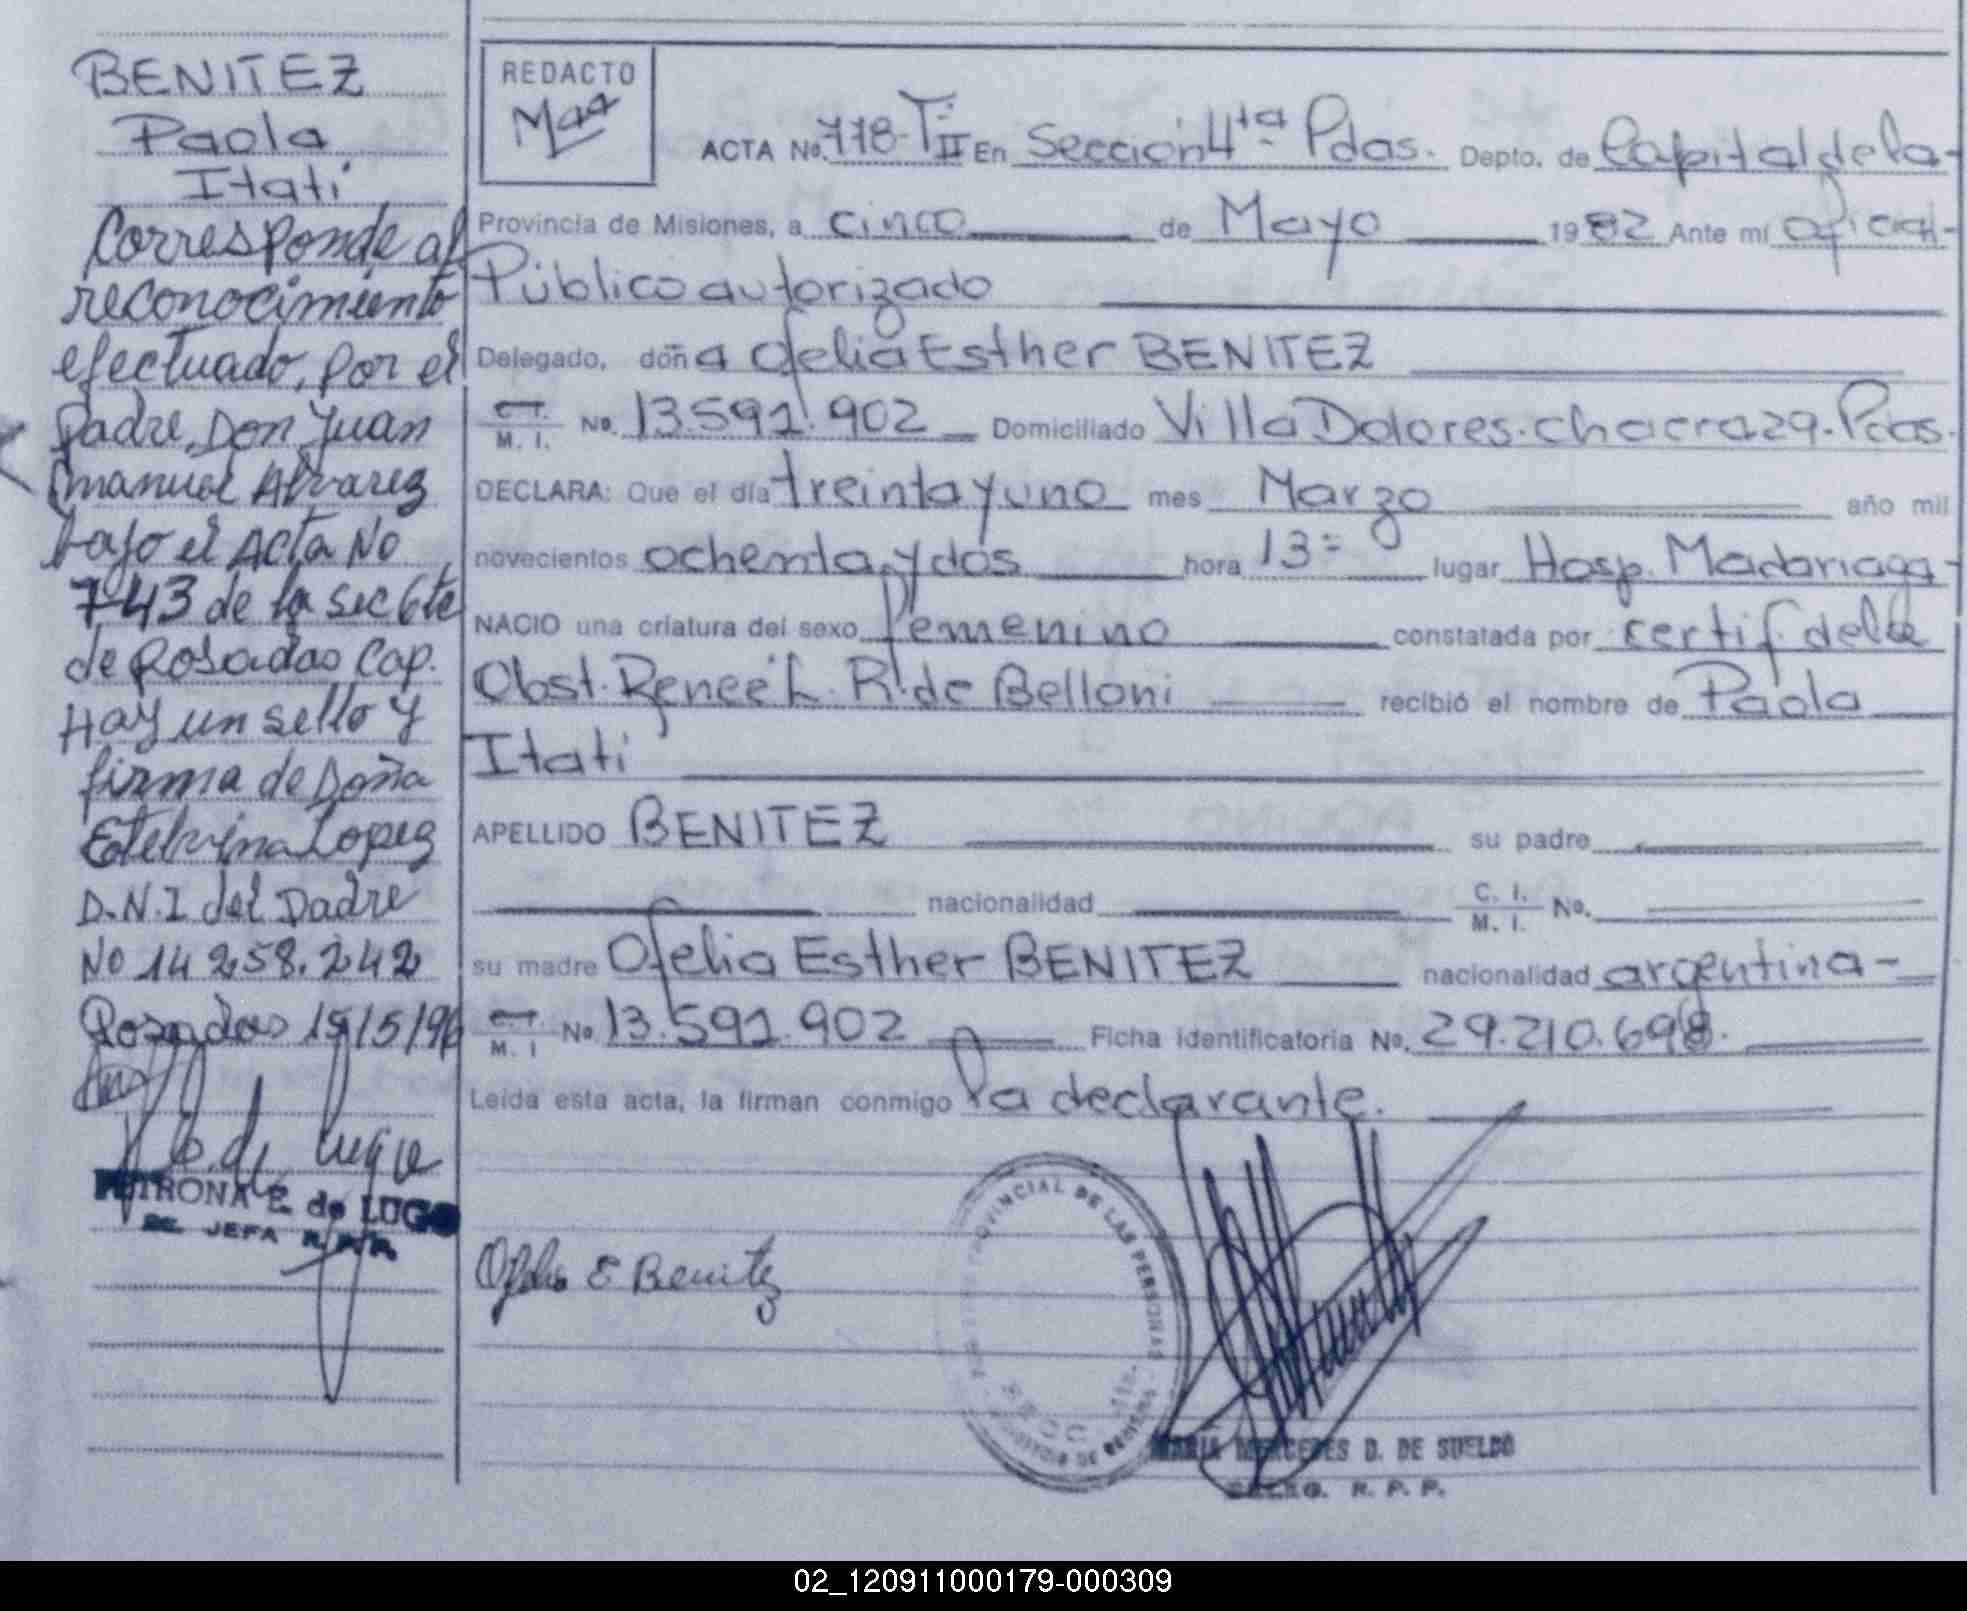 BENITEZ
Paola
Itatí
Corresponde al
reconocimiento
efectuado, por el
padre, Don Juan
Emanuel Alvarez
bajo el Acta No
743 de la sec 6ta
de Posadas Cap.
Hay un sello y
firma de Doña
Etelvina Lopez
D.N.I del Padre
No 14 258.242
Posadas 15/5/96
PETRONA E. de LUGO
JEFA R.P.P.
REDACTO
ACTA No. 778-T:II En Sección 4ta Pdas. Depto. de Capital de la-
Provincia de Misiones, a cinco de Mayo 1982 Ante mí oficial-
Público autorizado
Delegado, doña Ofelia Esther BENITEZ
M. I. No. 13.591.902 Domiciliado Villa Dolores-chacra 29-Pdas.
DECLARA: Que el día treinta y uno mes Marzo año mil
novecientos ochenta y dos hora 13= lugar Hosp. Madariaga-
NACIO una criatura del sexo femenino constatada por certif. de la
Obst. Reneé L. R. de Belloni recibió el nombre de Paola
Itatí
APELLIDO BENITEZ su padre
nacionalidad C. I. M. I. No.
su madre Ofelia Esther BENITEZ nacionalidad argentina-
M. I No. 13.591.902 Ficha identificatoria No. 29.210.698.
Leída esta acta, la firman conmigo la declarante.
Ofelia E Benitez
PROVINCIAL DE LAS PERSONAS
MARIA MERCEDES D. DE SUELDO
DELEG. R. P. P.
02_120911000179-000309